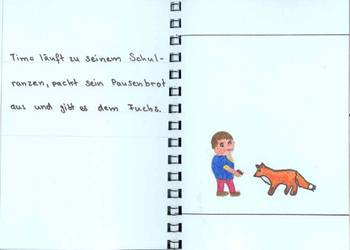 Timo läuft zu seinem Schul-
ranzen, packt sein Pausenbrot
aus und gibt es dem Fuchs.